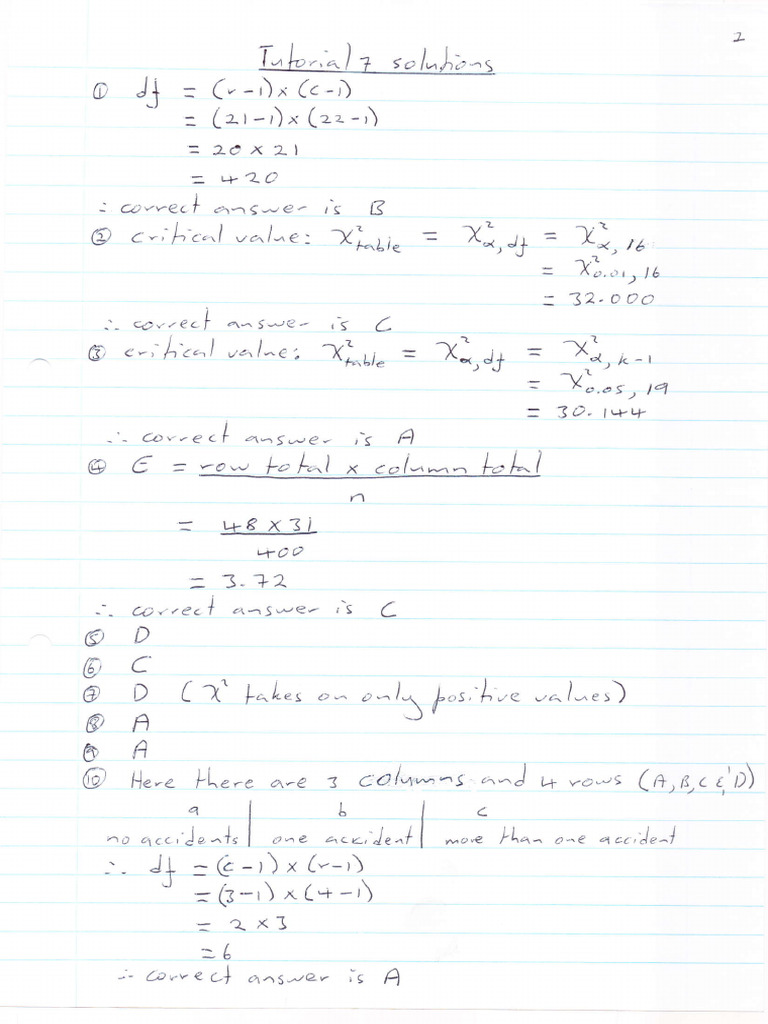 2
Tutorial 7 solutions
① df = (r-1) × (c-1)
= (21-1) × (22-1)
= 20 × 21
= 420
∴ correct answer is B
② critical value: χ²table = χ²α, df = χ²α, 16
= χ²0.01, 16
= 32.000
∴ correct answer is C
③ critical value: χ²table = χ²α, df = χ²α, k-1
= χ²0.05, 19
= 30.144
∴ correct answer is A
④ E = row total × column total
n
= 48 × 31
400
= 3.72
∴ correct answer is C
⑤ D
⑥ C
⑦ D (χ² takes on only positive values)
⑧ A
⑨ A
⑩ Here there are 3 columns and 4 rows (A, B, C & D)
a b c
no accidents | one accident | more than one accident
∴ df = (c-1) × (r-1)
= (3-1) × (4-1)
= 2 × 3
= 6
∴ correct answer is A